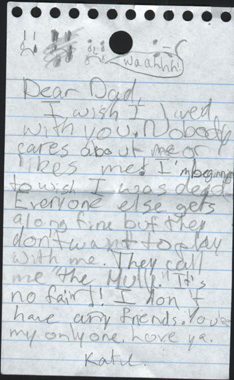 waahhh!
Dear Dad,
I wish I lived
with you. Nobody
cares about me or
likes me! I'm beginning
to wish I was dead
Everyone else gets
along fine but they
don't want to play
with me. They call
me "the Hulk". It's
no fair! I don't
have any friends. Your
my only one. Love ya.
Katie